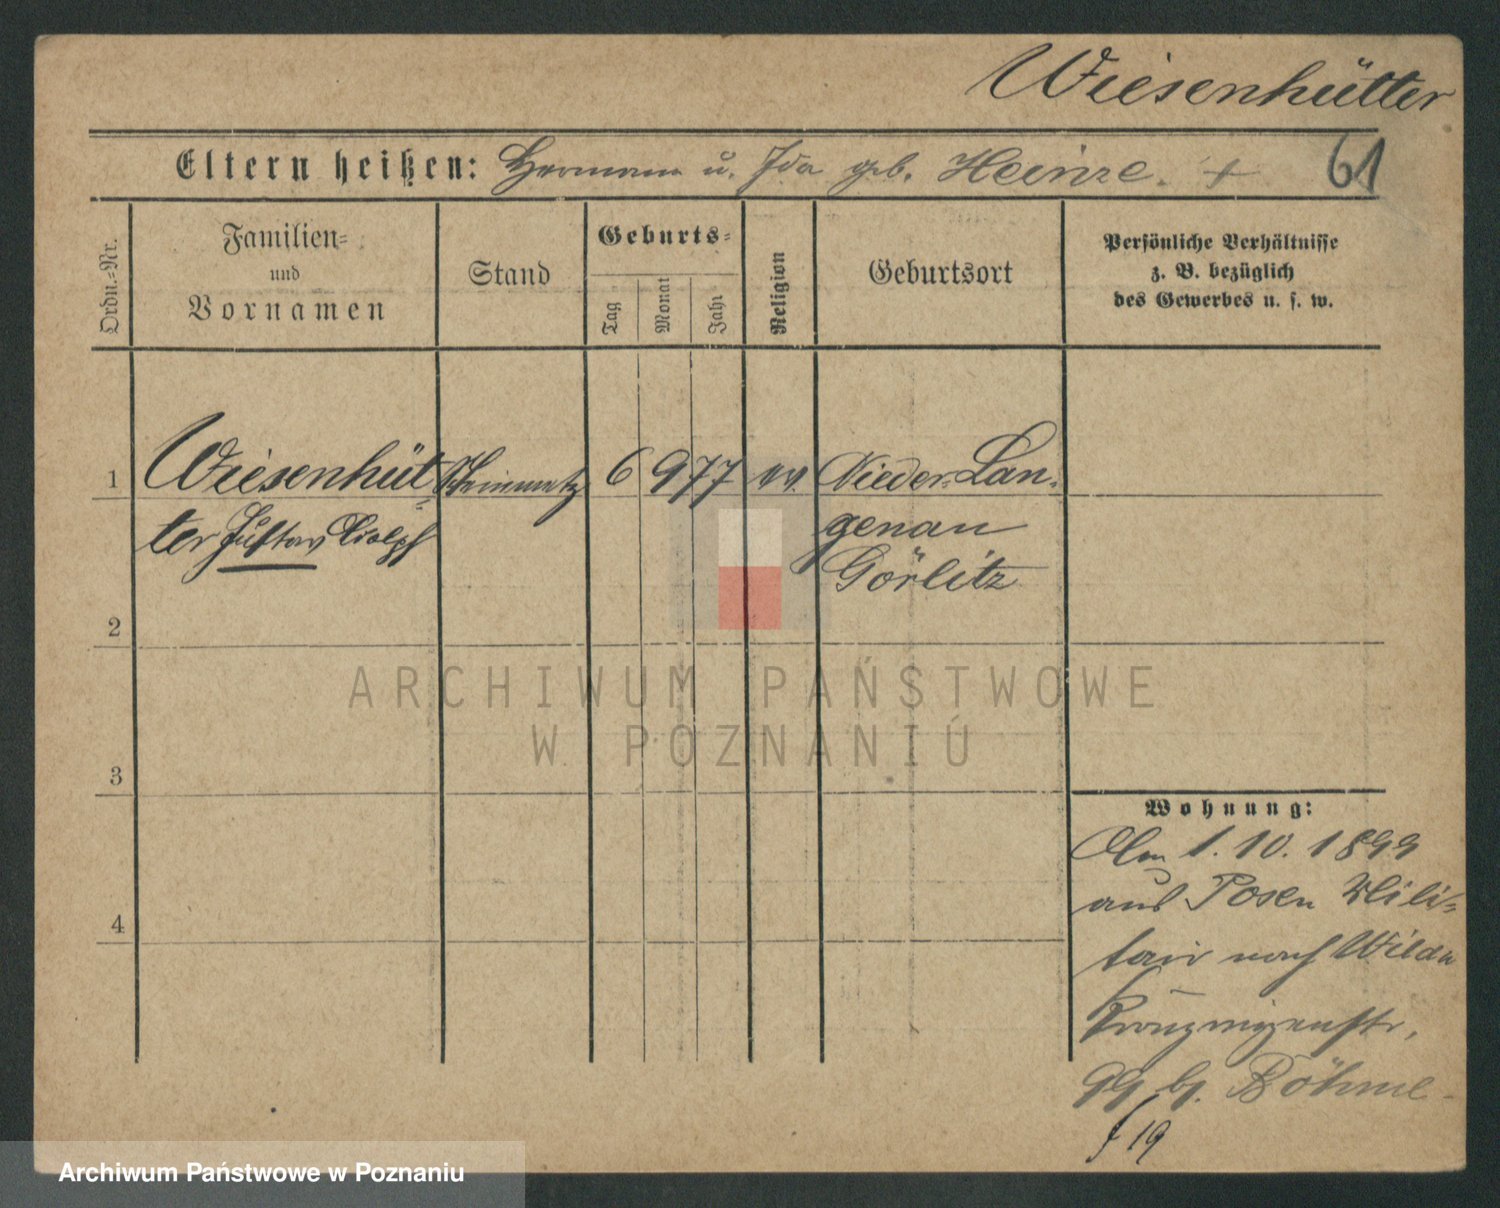 Wiesenhütter
Eltern heißen: Hermann u. Ida geb. Heinze. +
61
Ordn.-Nr.
Familien-
und
Vornamen
Stand
Geburts-
Tag
Monat
Jahr
Religion
Geburtsort
Persönliche Verhältnisse
z. B. bezüglich
des Gewerbes u. s. w.
1
Wiesenhüt-
ter Gustav Adolph
Steinmetz
6
9
77
ev.
Nieder-Lan-
genau
Görlitz
2
ARCHIWUM PAŃSTWOWE
W POZNANIU
3
4
Wohnung:
Am 1. 10. 1899
aus Posen Mili-
tair nach Wilda
Kronprinzenstr.
99 b. Böhme.
f 19
Archiwum Państwowe w Poznaniu